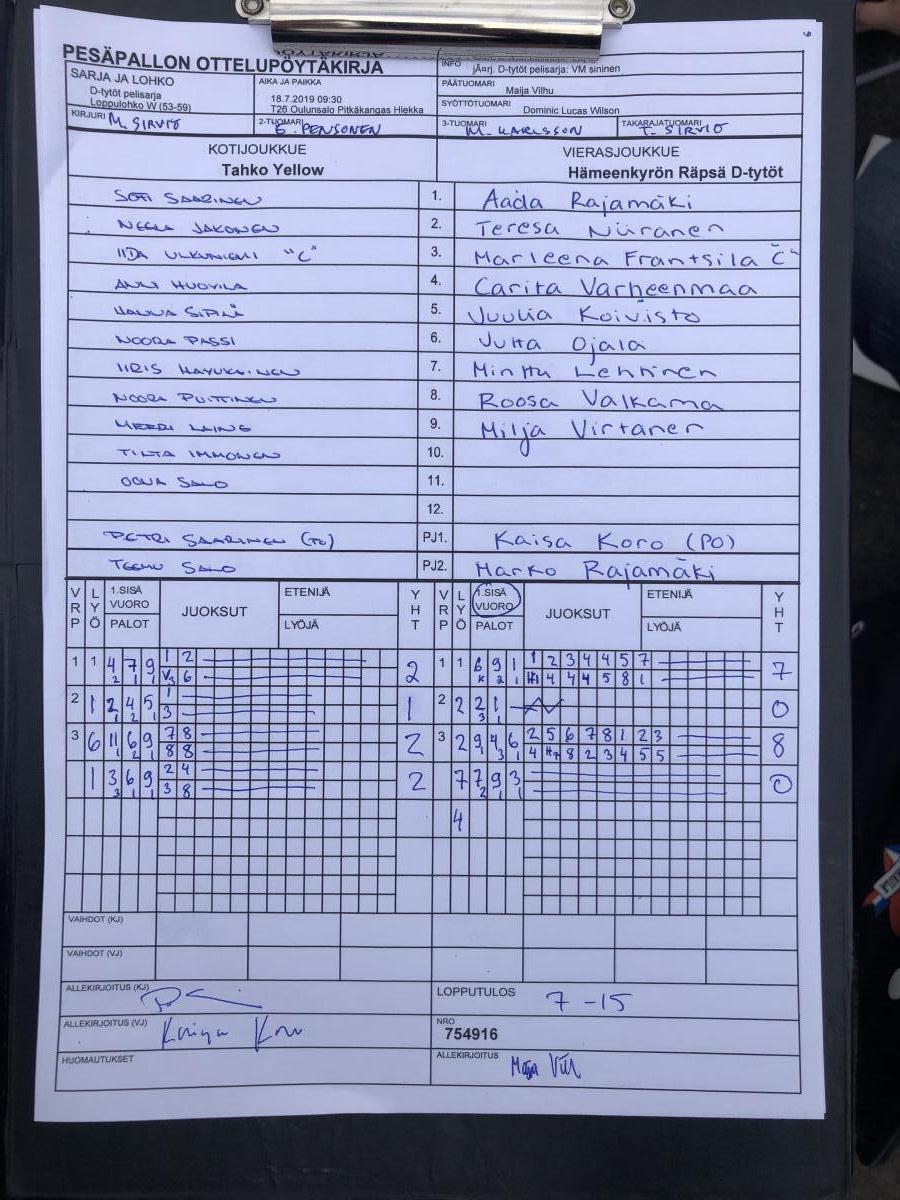 PESÄPALLON OTTELUPÖYTÄKIRJA
SARJA JA LOHKO
D-tytöt pelisarja
Loppulohko W (53-59)
AIKA JA PAIKKA
18.7.2019 09:30
T26 Oulunsalo Pitkäkangas Hiekka
INFO
jÄ¤rj. D-tytöt pelisarja: VM sininen
PÄÄTUOMARI
Maija Vilhu
SYÖTTÖTUOMARI
Dominic Lucas Wilson
KIRJURI M. SIRVIÖ
2-TUOMARI PENSONEN
3-TUOMARI M. KARLSSON
TAKARAJATUOMARI T. SIRVIÖ
KOTIJOUKKUE
Tahko Yellow
VIERASJOUKKUE
Hämeenkyrön Räpsä D-tytöt
SAARINEN 1. Aada Rajamäki
NEELA JAKONEN 2. Teresa Niiranen
IIDA ULKUNIEMI "C" 3. Marleena Frantsila C
ANNI HUOVILA 4. Carita Varheenmaa
HANNA SIPILÄ 5. Juulia Koivisto
NOORA PASSI 6. Jutta Ojala
IIRIS 7. Minttu Lehtinen
NOORA PUITTINEN 8. Roosa Valkama
MEERI LAINE 9. Milja Virtanen
IMMONEN 10.
SALO 11.
12.
PETRI SAARINEN (PO) PJ1. Kaisa Koro (PO)
TEEMU SALO PJ2. Marko Rajamäki
VRP LYÖ 1.SISÄ VUORO PALOT JUOKSUT ETENIJÄ LYÖJÄ YHT
VRP LYÖ 1.SISÄ VUORO PALOT JUOKSUT ETENIJÄ LYÖJÄ YHT
1 1 4 7 9 1 2 2 1 1 6 9 1 1 2 3 4 4 5 7 7
2 1 1 6 2 1 4 4 4 5 8 1
2 1 2 4 5 1 1 2 2 2 1 0
1 2 1 3 3 1
3 6 11 6 9 7 8 2 3 2 9 4 6 2 5 6 7 8 1 2 3 8
1 2 1 8 8 3 1 4 8 2 3 4 5 5
1 3 6 9 2 4 2 7 7 9 3 0
3 1 1 3 8 2 1
4
VAIHDOT (KJ)
VAIHDOT (VJ)
ALLEKIRJOITUS (KJ)
LOPPUTULOS 7 - 15
ALLEKIRJOITUS (VJ) Kaisa Koro
NRO
754916
HUOMAUTUKSET
ALLEKIRJOITUS